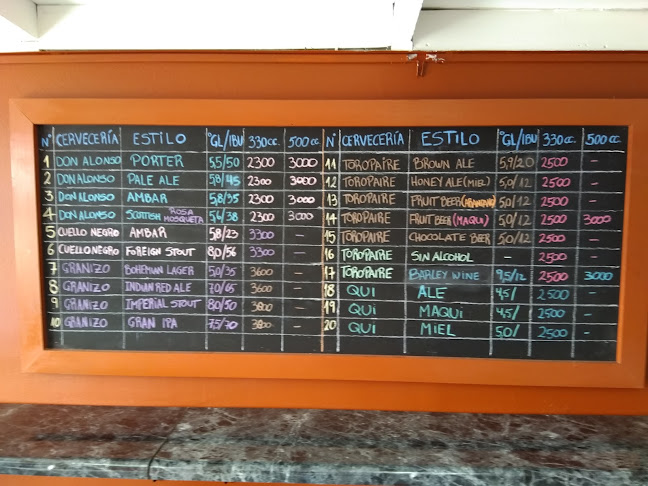 N° CERVECERÍA ESTILO °GL/IBU 330cc. 500cc.
1 DON ALONSO PORTER 5,5/50 2300 3000
2 DON ALONSO PALE ALE 5,8/45 2300 3000
3 DON ALONSO AMBAR 5,8/35 2300 3000
4 DON ALONSO SCOTTISH ROSA MOSQUETA 5,6/38 2300 3000
5 CUELLO NEGRO AMBAR 5,8/23 3300 -
6 CUELLO NEGRO FOREIGN STOUT 6,0/56 3300 -
7 GRANIZO BOHEMIAN LAGER 5,0/35 3600 -
8 GRANIZO INDIAN RED ALE 7,0/65 3600 -
9 GRANIZO IMPERIAL STOUT 8,0/50 3800 -
10 GRANIZO GRAN IPA 7,5/70 3800 -
N° CERVECERÍA ESTILO °GL/IBU 330cc. 500cc.
11 TOROPAIRE BROWN ALE 5,9/20 2500 -
12 TOROPAIRE HONEY ALE (MIEL) 5,0/12 2500 -
13 TOROPAIRE FRUIT BEER 5,0/12 2500 -
14 TOROPAIRE FRUIT BEER (MAQUI) 5,0/12 2500 3000
15 TOROPAIRE CHOCOLATE BEER 5,0/12 2500 -
16 TOROPAIRE SIN ALCOHOL - 2500 -
17 TOROPAIRE BARLEY WINE 9,5/12 2500 3000
18 QUI ALE 4,5/ 2500 -
19 QUI MAQUI 4,5/ 2500 -
20 QUI MIEL 5,0/ 2500 -